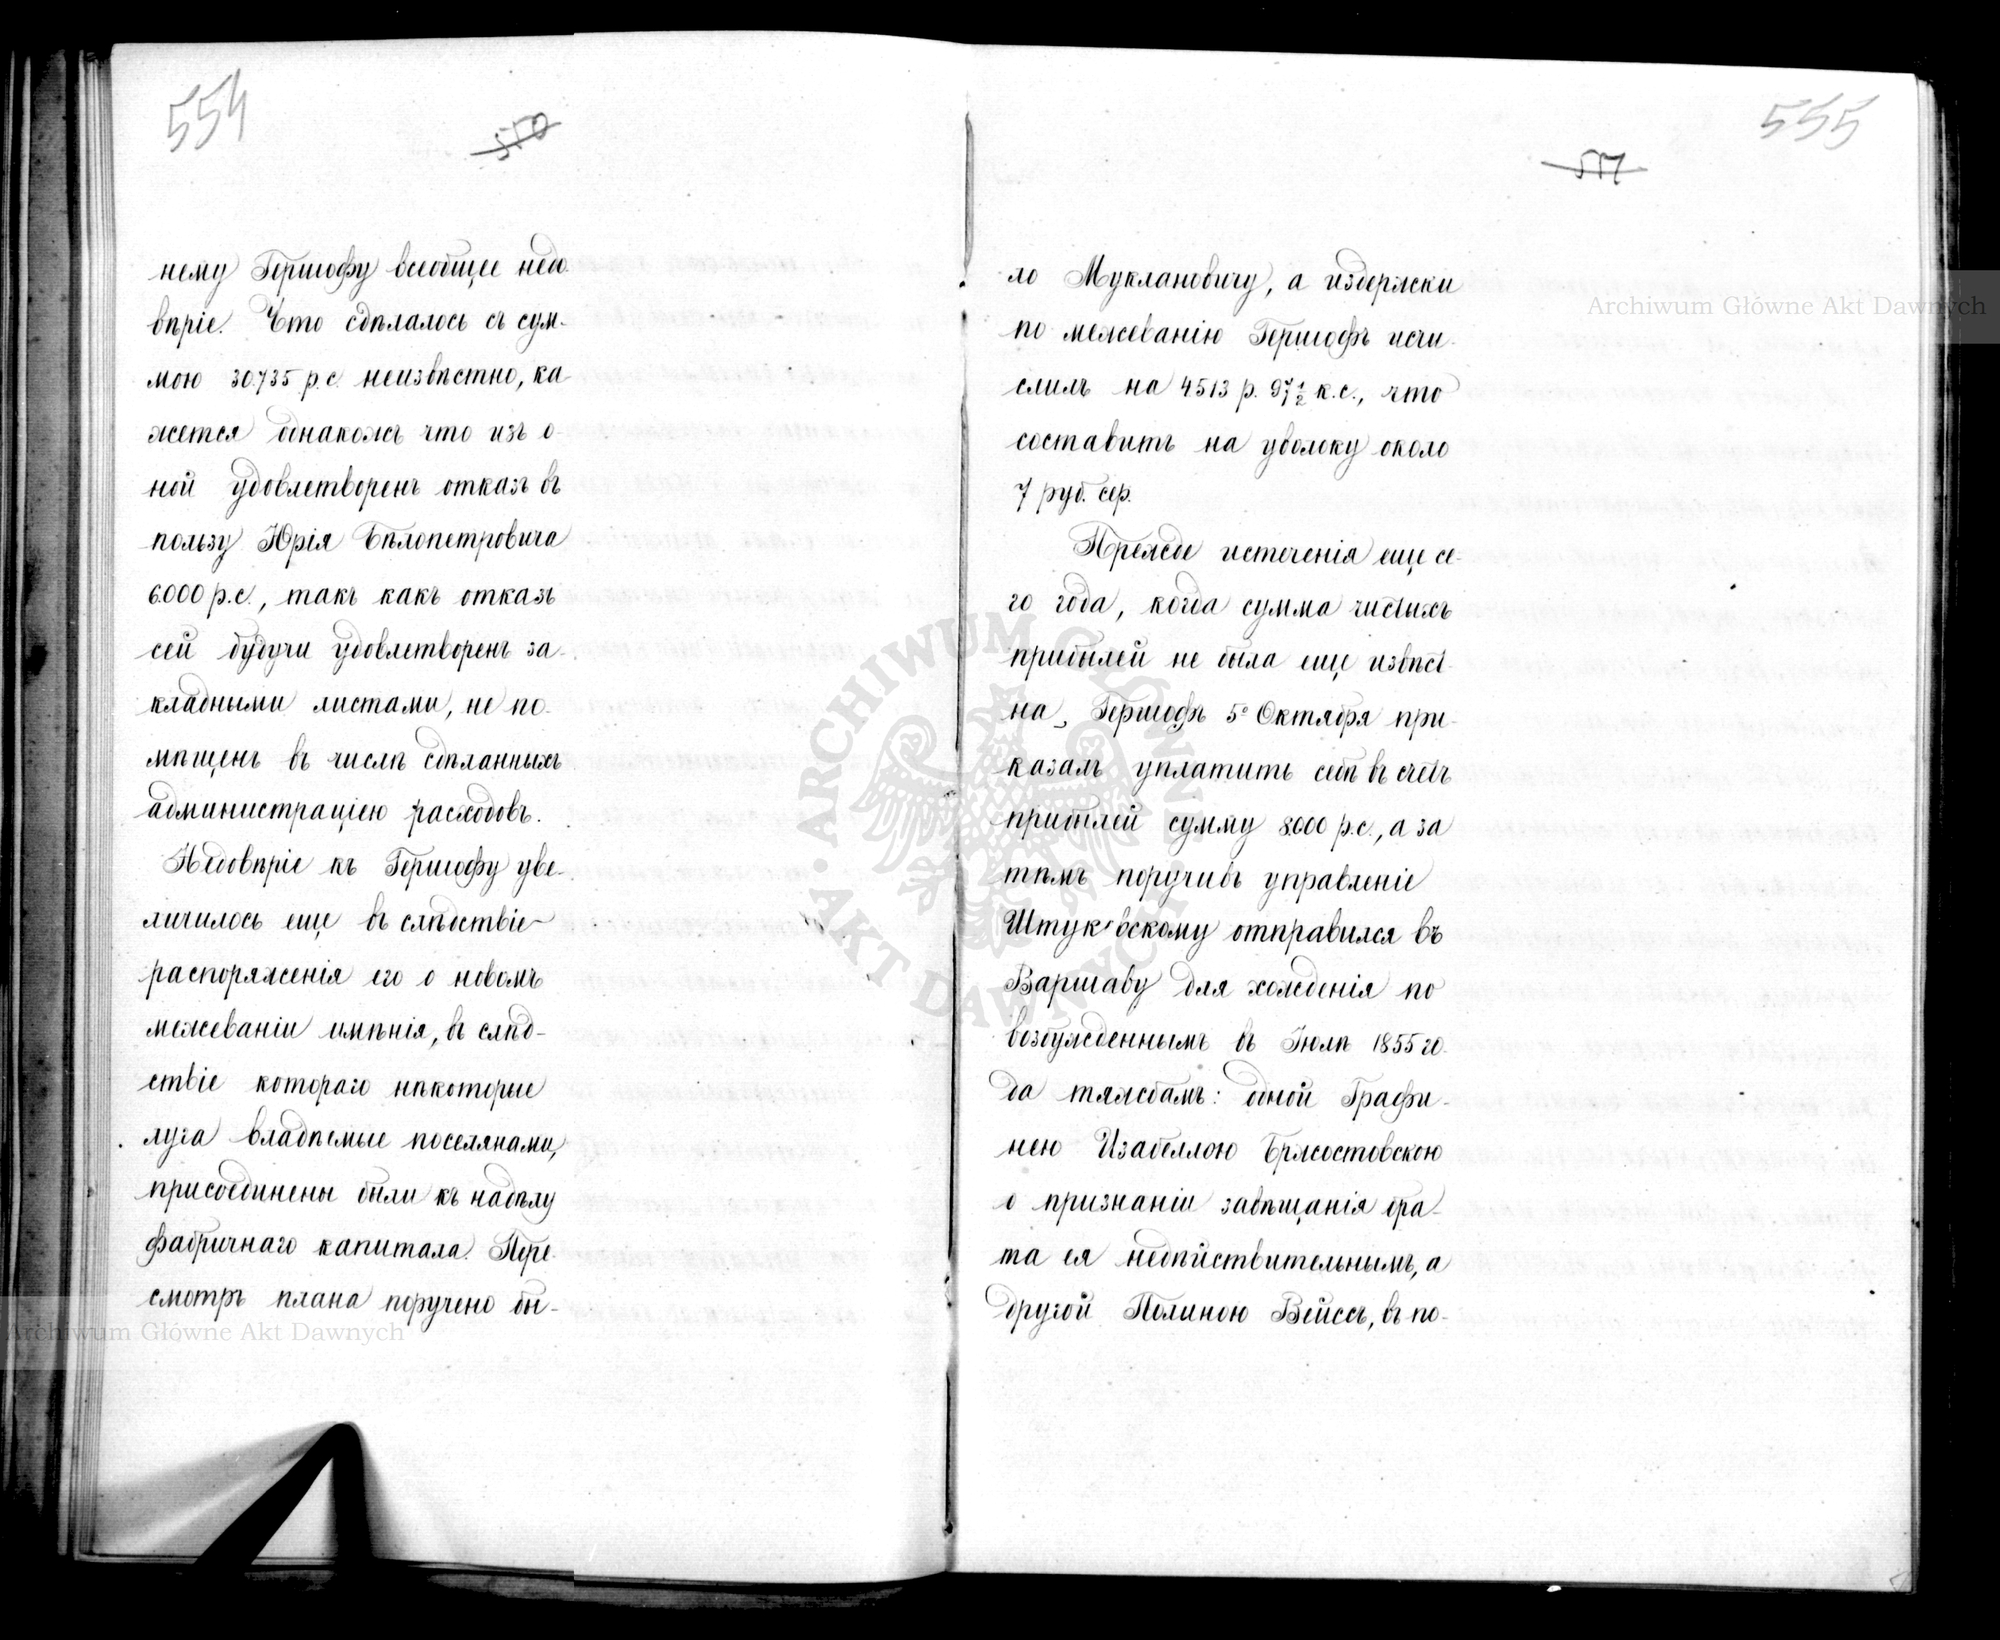 554
550
нему Гершофу всеобщее недо-
вѣріе. Что сдѣлалось съ сум-
мою 30.735 р.с. неизвѣстно, ка-
жется однакожъ что изъ о-
ной удовлетворенъ отказъ въ
пользу Юрія Бѣлопетровича
6.000 р.с., такъ какъ отказъ
сей будучи удовлетворенъ за-
кладными листами, не по-
мѣщенъ въ числѣ сдѣланныхъ
администраціею расходовъ.
Недовѣріе къ Гершофу уве-
личилось еще въ слѣдствіе
распоряженія его о новомъ
межеваніи имѣнія, въ слѣд-
ствіе котораго нѣкоторые
луга владѣемые поселянами,
присоединены были къ надѣлу
фабричнаго капитала. Пере-
смотръ плана поручено бы-
555
ло Муклановичу, а издержки
по межеванію Гершофъ исчи-
слилъ на 4513 р. 97 1/2 к.с., что
составитъ на уволоку около
7 руб. сер.
Прежде истеченія еще се-
го года, когда сумма чистыхъ
прибылей не была еще извѣст-
на, Гершофъ 5º Октября при-
казалъ уплатить себѣ въ счетъ
прибылей сумму 8.000 р.с., а за
тѣмъ поручивъ управленіе
Штуковскому отправился въ
Варшаву для хожденія по
возбужденнымъ въ Іюлѣ 1855 го-
да тяжбамъ: одной Графи-
нею Изабеллою Бржостовскою
о признаніи завѣщанія бра-
та ея недѣйствительнымъ, а
другой Полиною Вейссъ, въ по-
Archiwum Główne Akt Dawnych
Archiwum Główne Akt Dawnych
ARCHIWUM GŁÓWNE AKT DAWNYCH